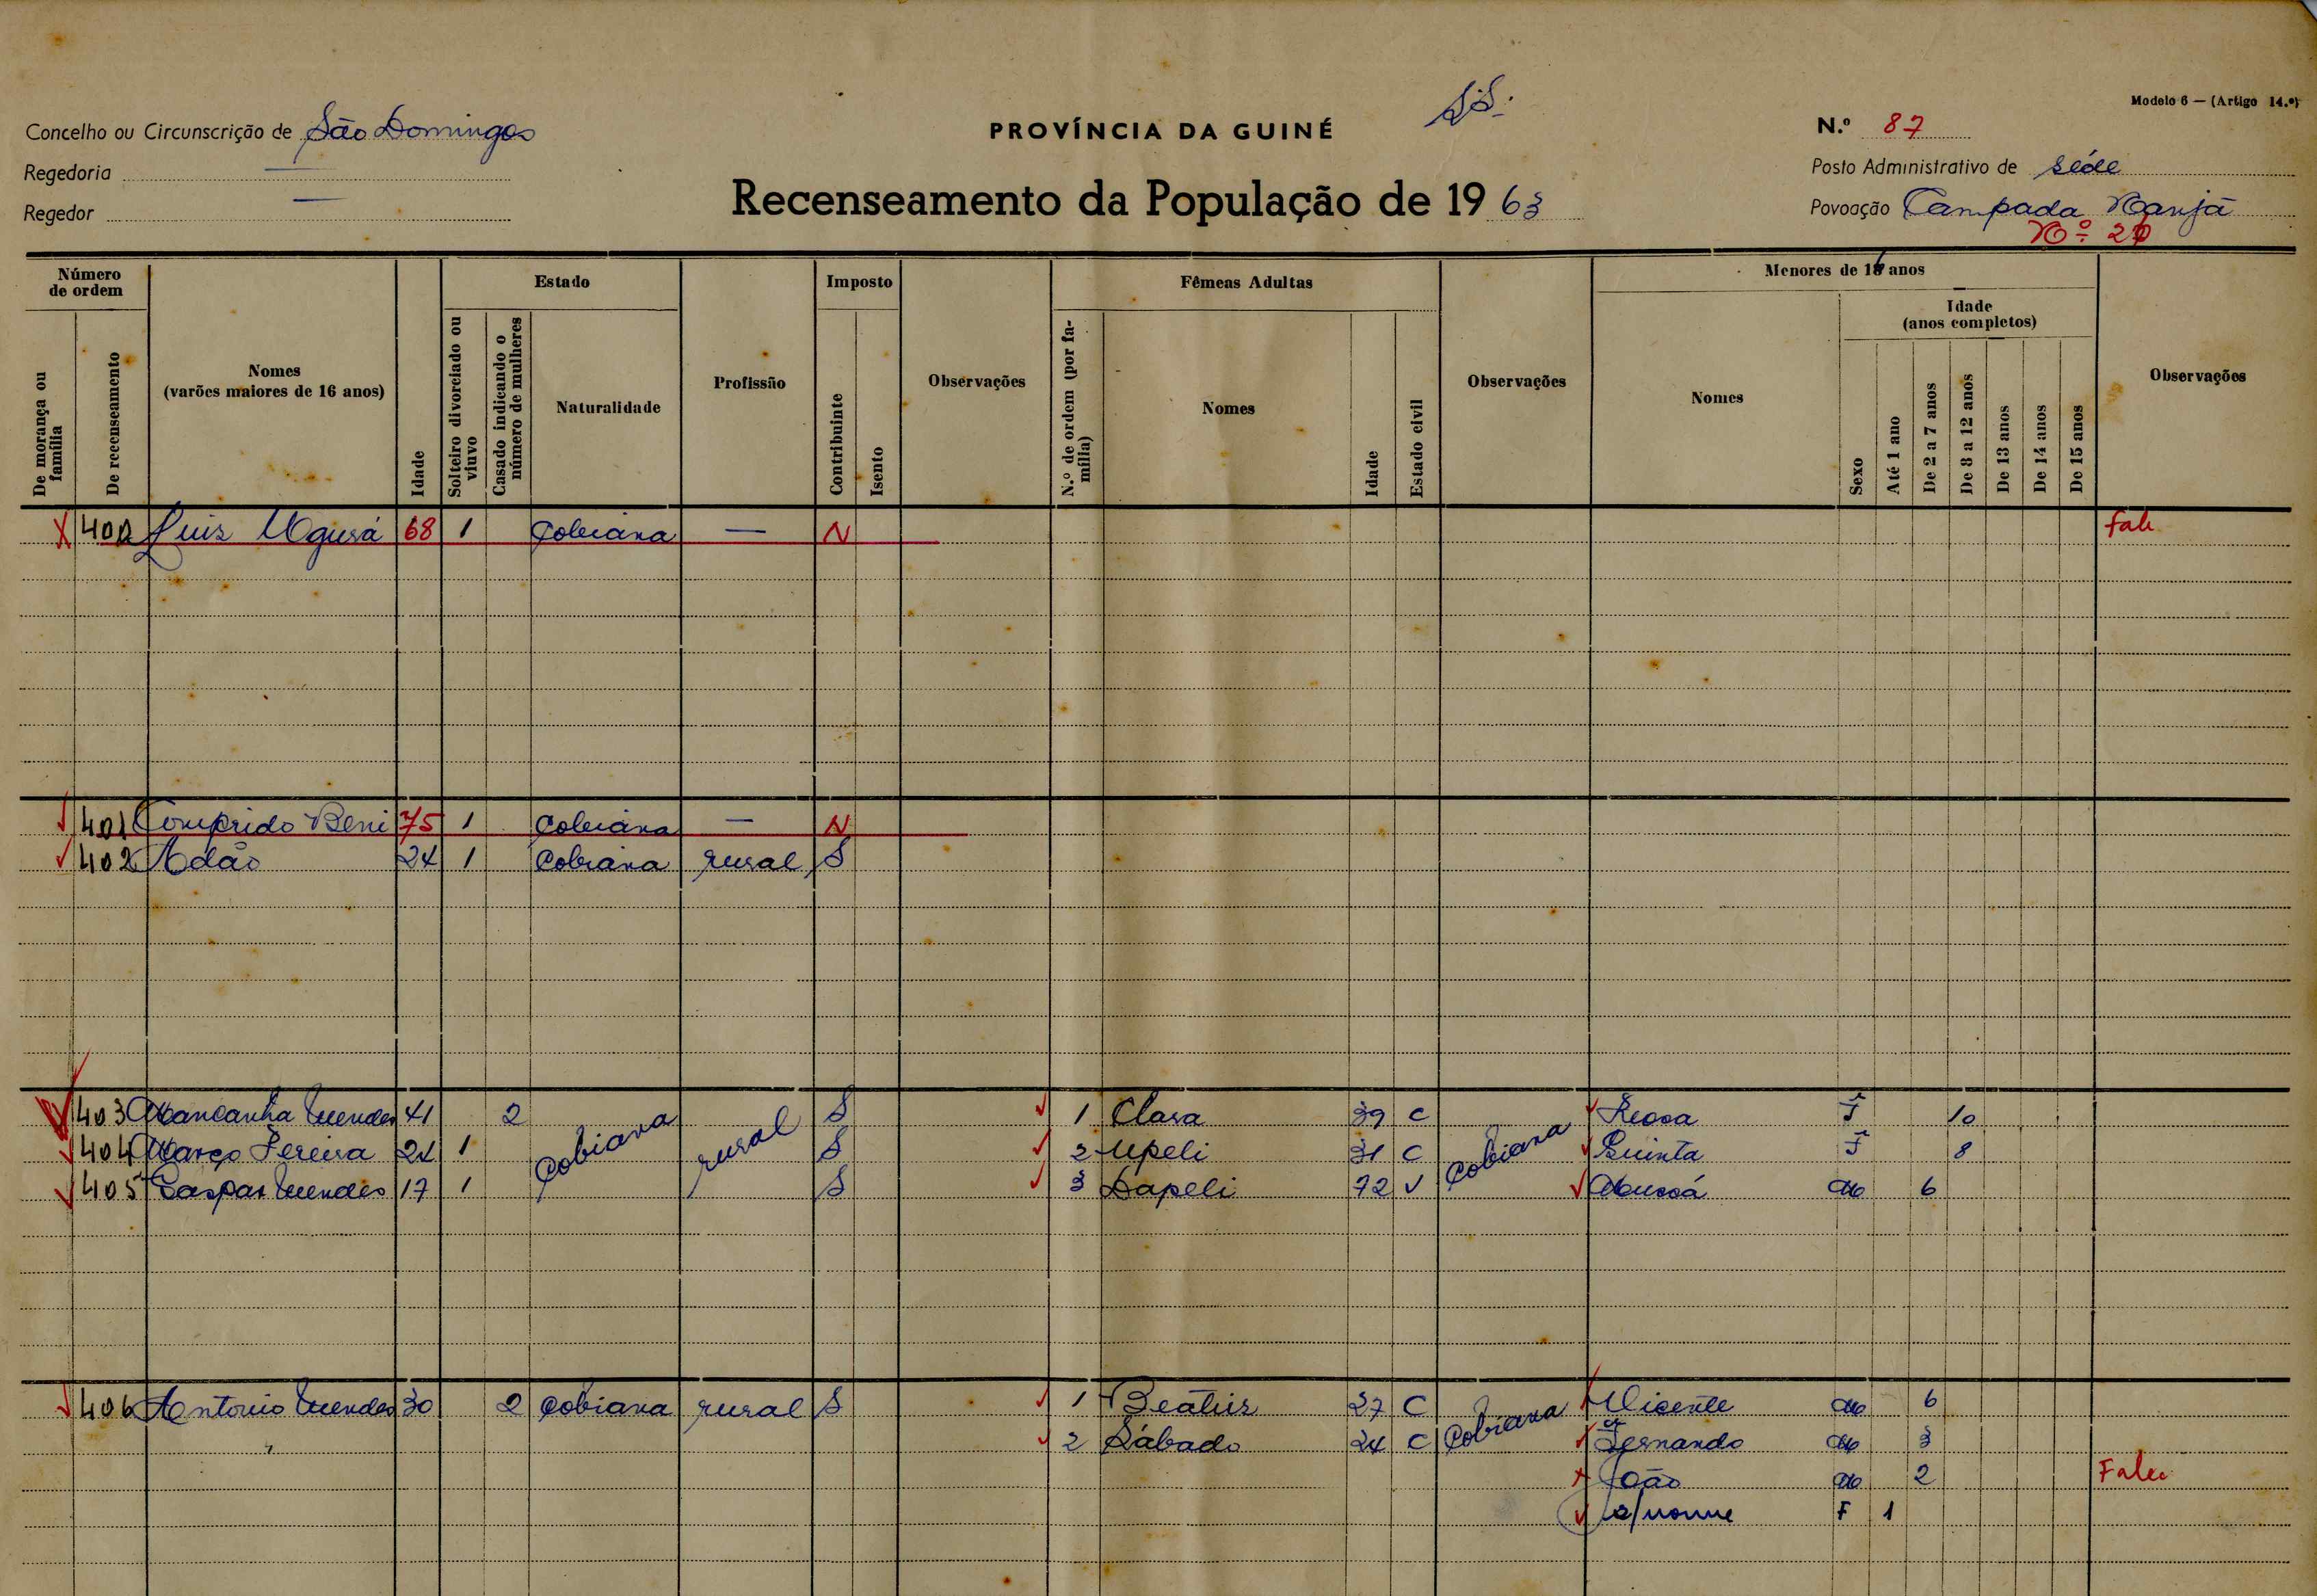 Modelo 6 — (Artigo 14.º)
Concelho ou Circunscrição de São Domingos
Regedoria —
Regedor —
PROVÍNCIA DA GUINÉ
Recenseamento da População de 19 63
N.º 87
Posto Administrativo de Séde
Povoação Campada
Nº
Número de ordem
De morança ou família
De recenseamento
Nomes (varões maiores de 16 anos)
Idade
Estado
Solteiro divorciado ou viuvo
Casado indicando o número de mulheres
Naturalidade
Profissão
Imposto
Contribuinte
Isento
Observações
Fêmeas Adultas
N.º de ordem (por família)
Nomes
Idade
Estado civil
Observações
Menores de anos
Nomes
Sexo
Idade (anos completos)
Até 1 ano
De 2 a 7 anos
De 8 a 12 anos
De 13 anos
De 14 anos
De 15 anos
Observações
400 Luis 68 1 Cobiana — N
401 Comprido Beni 75 1 Cobiana — N
402 Adão 24 1 Cobiana rural S
403 Mancanha Mendes 41 2 Cobiana rural S 1 Clara 39 C Cobiana F 10
404 Março Pereira 24 1 S 2 Upeli 31 C Quinta F 8
405 Gaspar Mendes 17 1 S 3 Sapeli 72 V M 6
406 Antonio Mendes 30 2 Cobiana rural S 1 Beatriz 27 C Cobiana Vicente M 6
2 Sábado 24 C Fernando M 3
João M 2 Falec
s/nome F 1